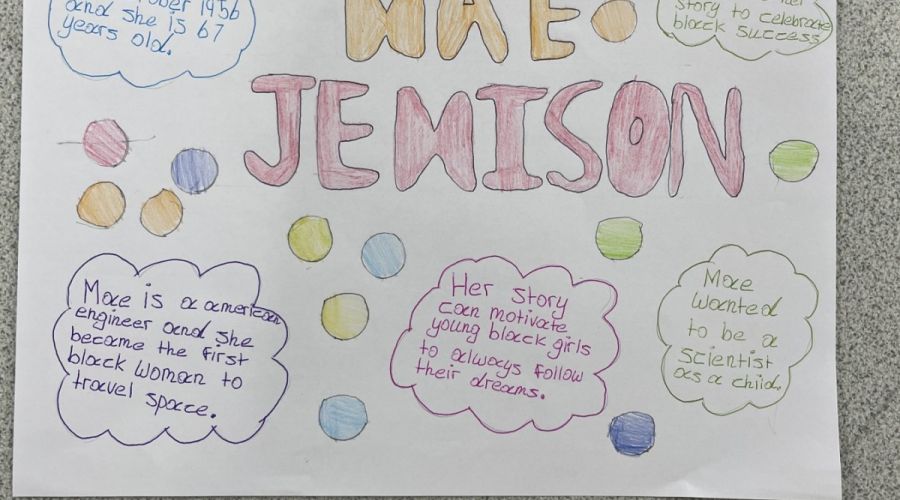 1956
and she is 67
years old.
story to celebrate
black success
MAE
JEMISON
Mae is a american
engineer and she
became the first
black woman to
travel space.
Her story
can motivate
young black girls
to always follow
their dreams.
Mae
wanted
to be a
scientist
as a child.